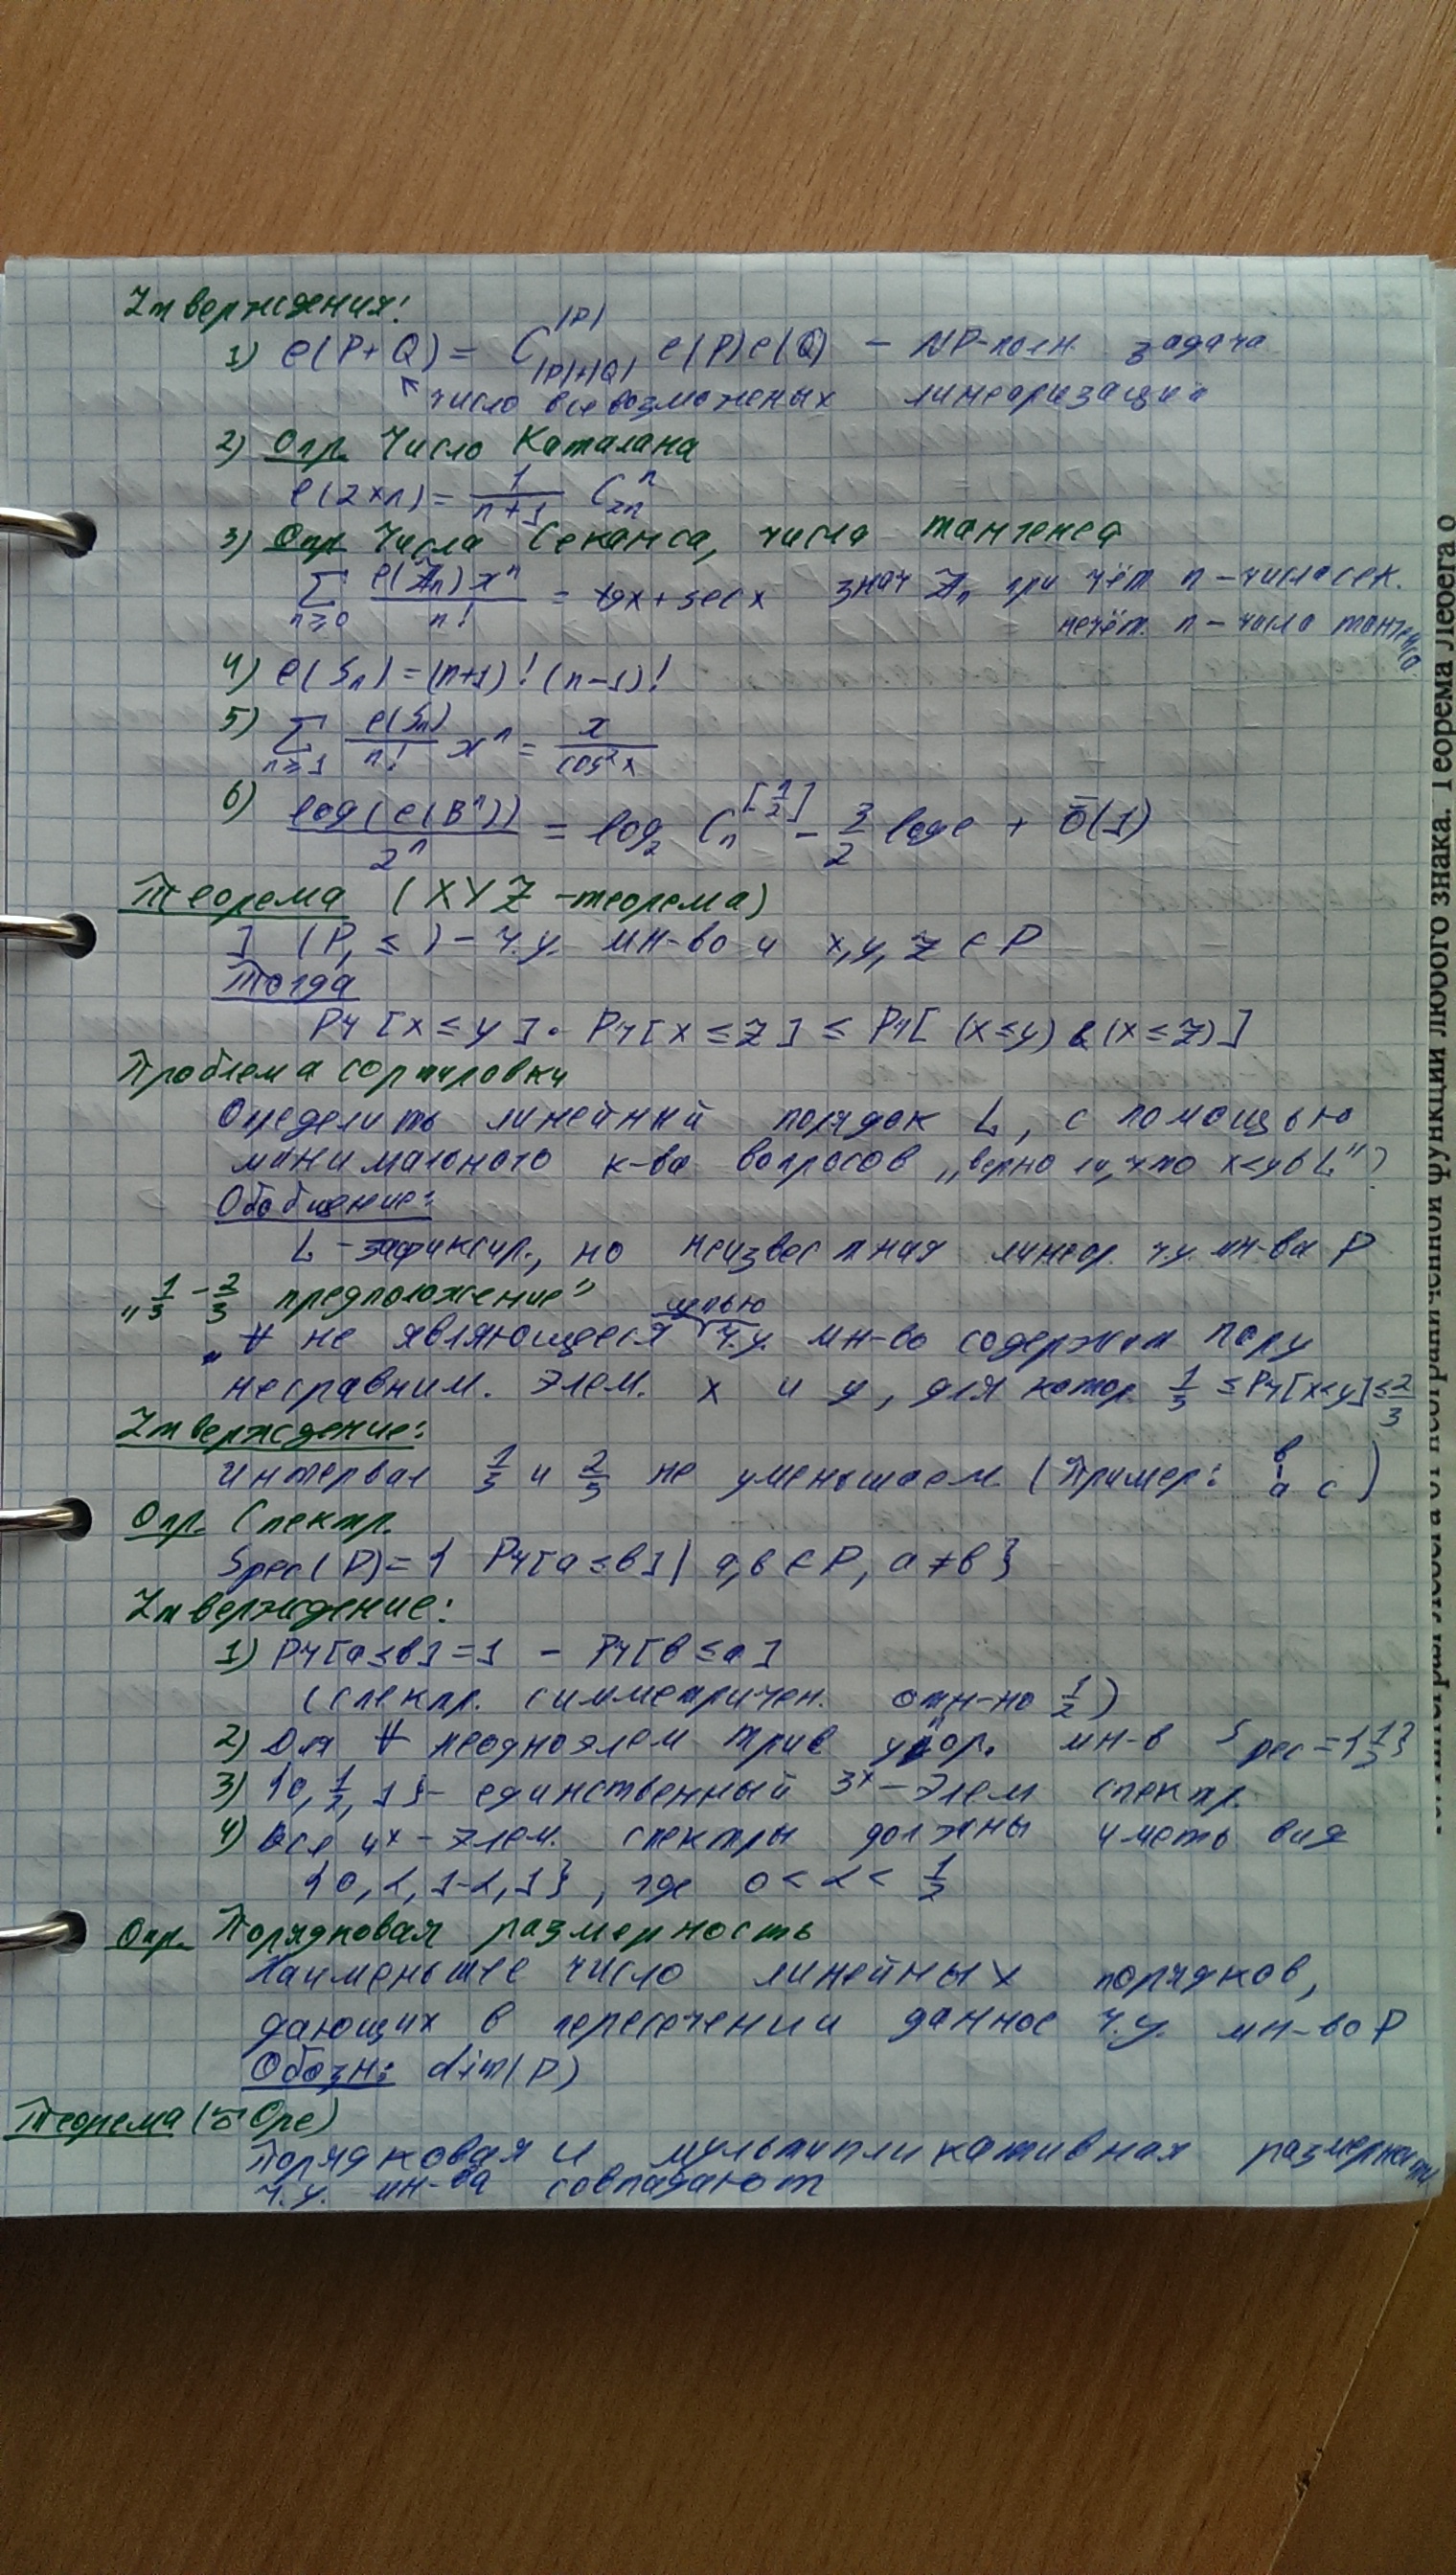 Утверждения:
1) e(P+Q) = C_{|P|+|Q|}^{|P|} e(P)e(Q) — NP-полн. задача
↖ число всевозможеных линеаризаций
2) Опр. Число Каталана
e(2×n) = 1/(n+1) C_{2n}^{n}
3) Опр Числа Секанса, числа тангенса
∑_{n≥0} e(Z_n)x^n / n! = tgx + sec x знач Z_n при чёт. n – числа сек.
нечёт. n – числа тангенса.
4) e(S_n) = (n+1)! (n-1)!
5) ∑_{n≥1} e(S_n)/n! x^n = x/cos²x
6) log(e(B^n))/2^n = log_2 C_n^{[n/2]} - 3/2 log e + ō(1)
Теорема (XYZ-теорема)
] (P, ≤) – ч.у. мн-во и x, y, z ∈ P
Тогда
Pr[x ≤ y] · Pr[x ≤ z] ≤ Pr[(x ≤ y) & (x ≤ z)]
Проблема сортировки
Определить линейный порядок L, с помощью
минимального к-ва вопросов „верно ли, что x<y в L"?
Обобщение:
L – зафиксир., но неизвестная линеор. ч.у. мн-ва P
„1/3 – 2/3 предположение"
цепью
„∀ не являющееся ч.у. мн-во содержит пару
несравним. элем. x и y, для котор. 1/3 ≤ Pr[x<y] ≤ 2/3
Утверждение:
Интервал 1/3 и 2/3 не уменьшаем (Пример: b
a c)
Опр. Спектр.
Spec(P) = { Pr[a ≤ b] | a, b ∈ P, a ≠ b }
Утверждение:
1) Pr[a ≤ b] = 1 – Pr[b ≤ a]
(спектр. симметричен. отн-но 1/2)
2) Для ∀ неодноэлем трив упор. мн-в Spec = {1/2}
3) {0, 1/2, 1} – единственный 3х – элем спектр.
4) Все 4х – элем. спектры должны иметь вид
{0, α, 1-α, 1}, где 0 < α < 1/3
Опр. Порядковая размерность
Наименьшее число линейных порядков,
дающих в пересечении данное ч.у. мн-во P
Обозн: dim(P)
Теорема (Оре)
Порядковая и мультипликативная размерности
ч.у. мн-ва совпадают
Теорема Лебега о
функции любого знака.
от неограниченной